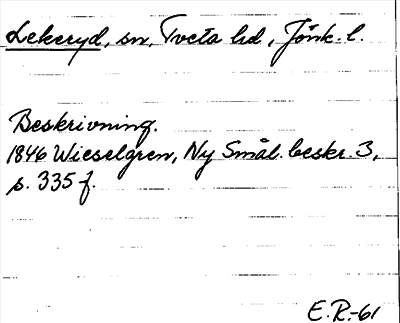 Lekeryd, sn, Tveta hd, Jönk. l.
Beskrivning.
1846 Wieselgren, Ny Smål. beskr. 3,
s. 335 f.
E.R.-61